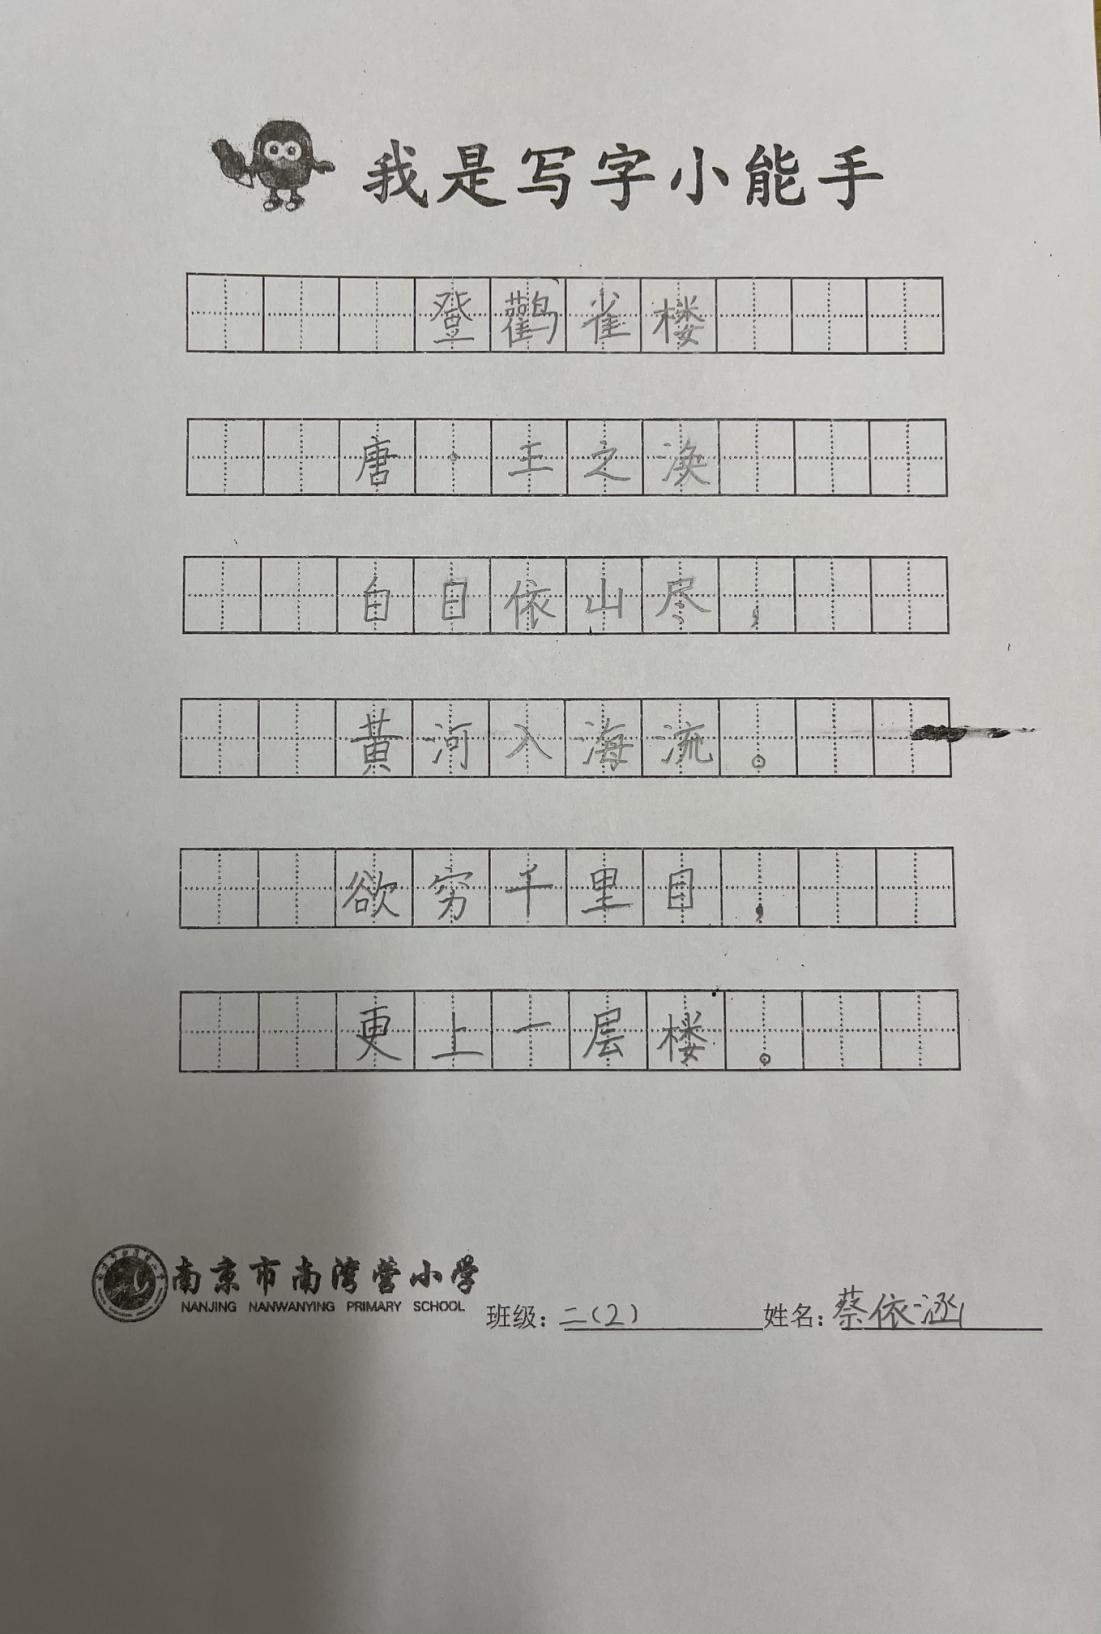 我是写字小能手
登鹳雀楼
唐·王之涣
白日依山尽，
黄河入海流。
欲穷千里目，
更上一层楼。
南京市南湾营小学
NANJING NANWANYING PRIMARY SCHOOL
班级：二(2) 姓名：蔡依涵